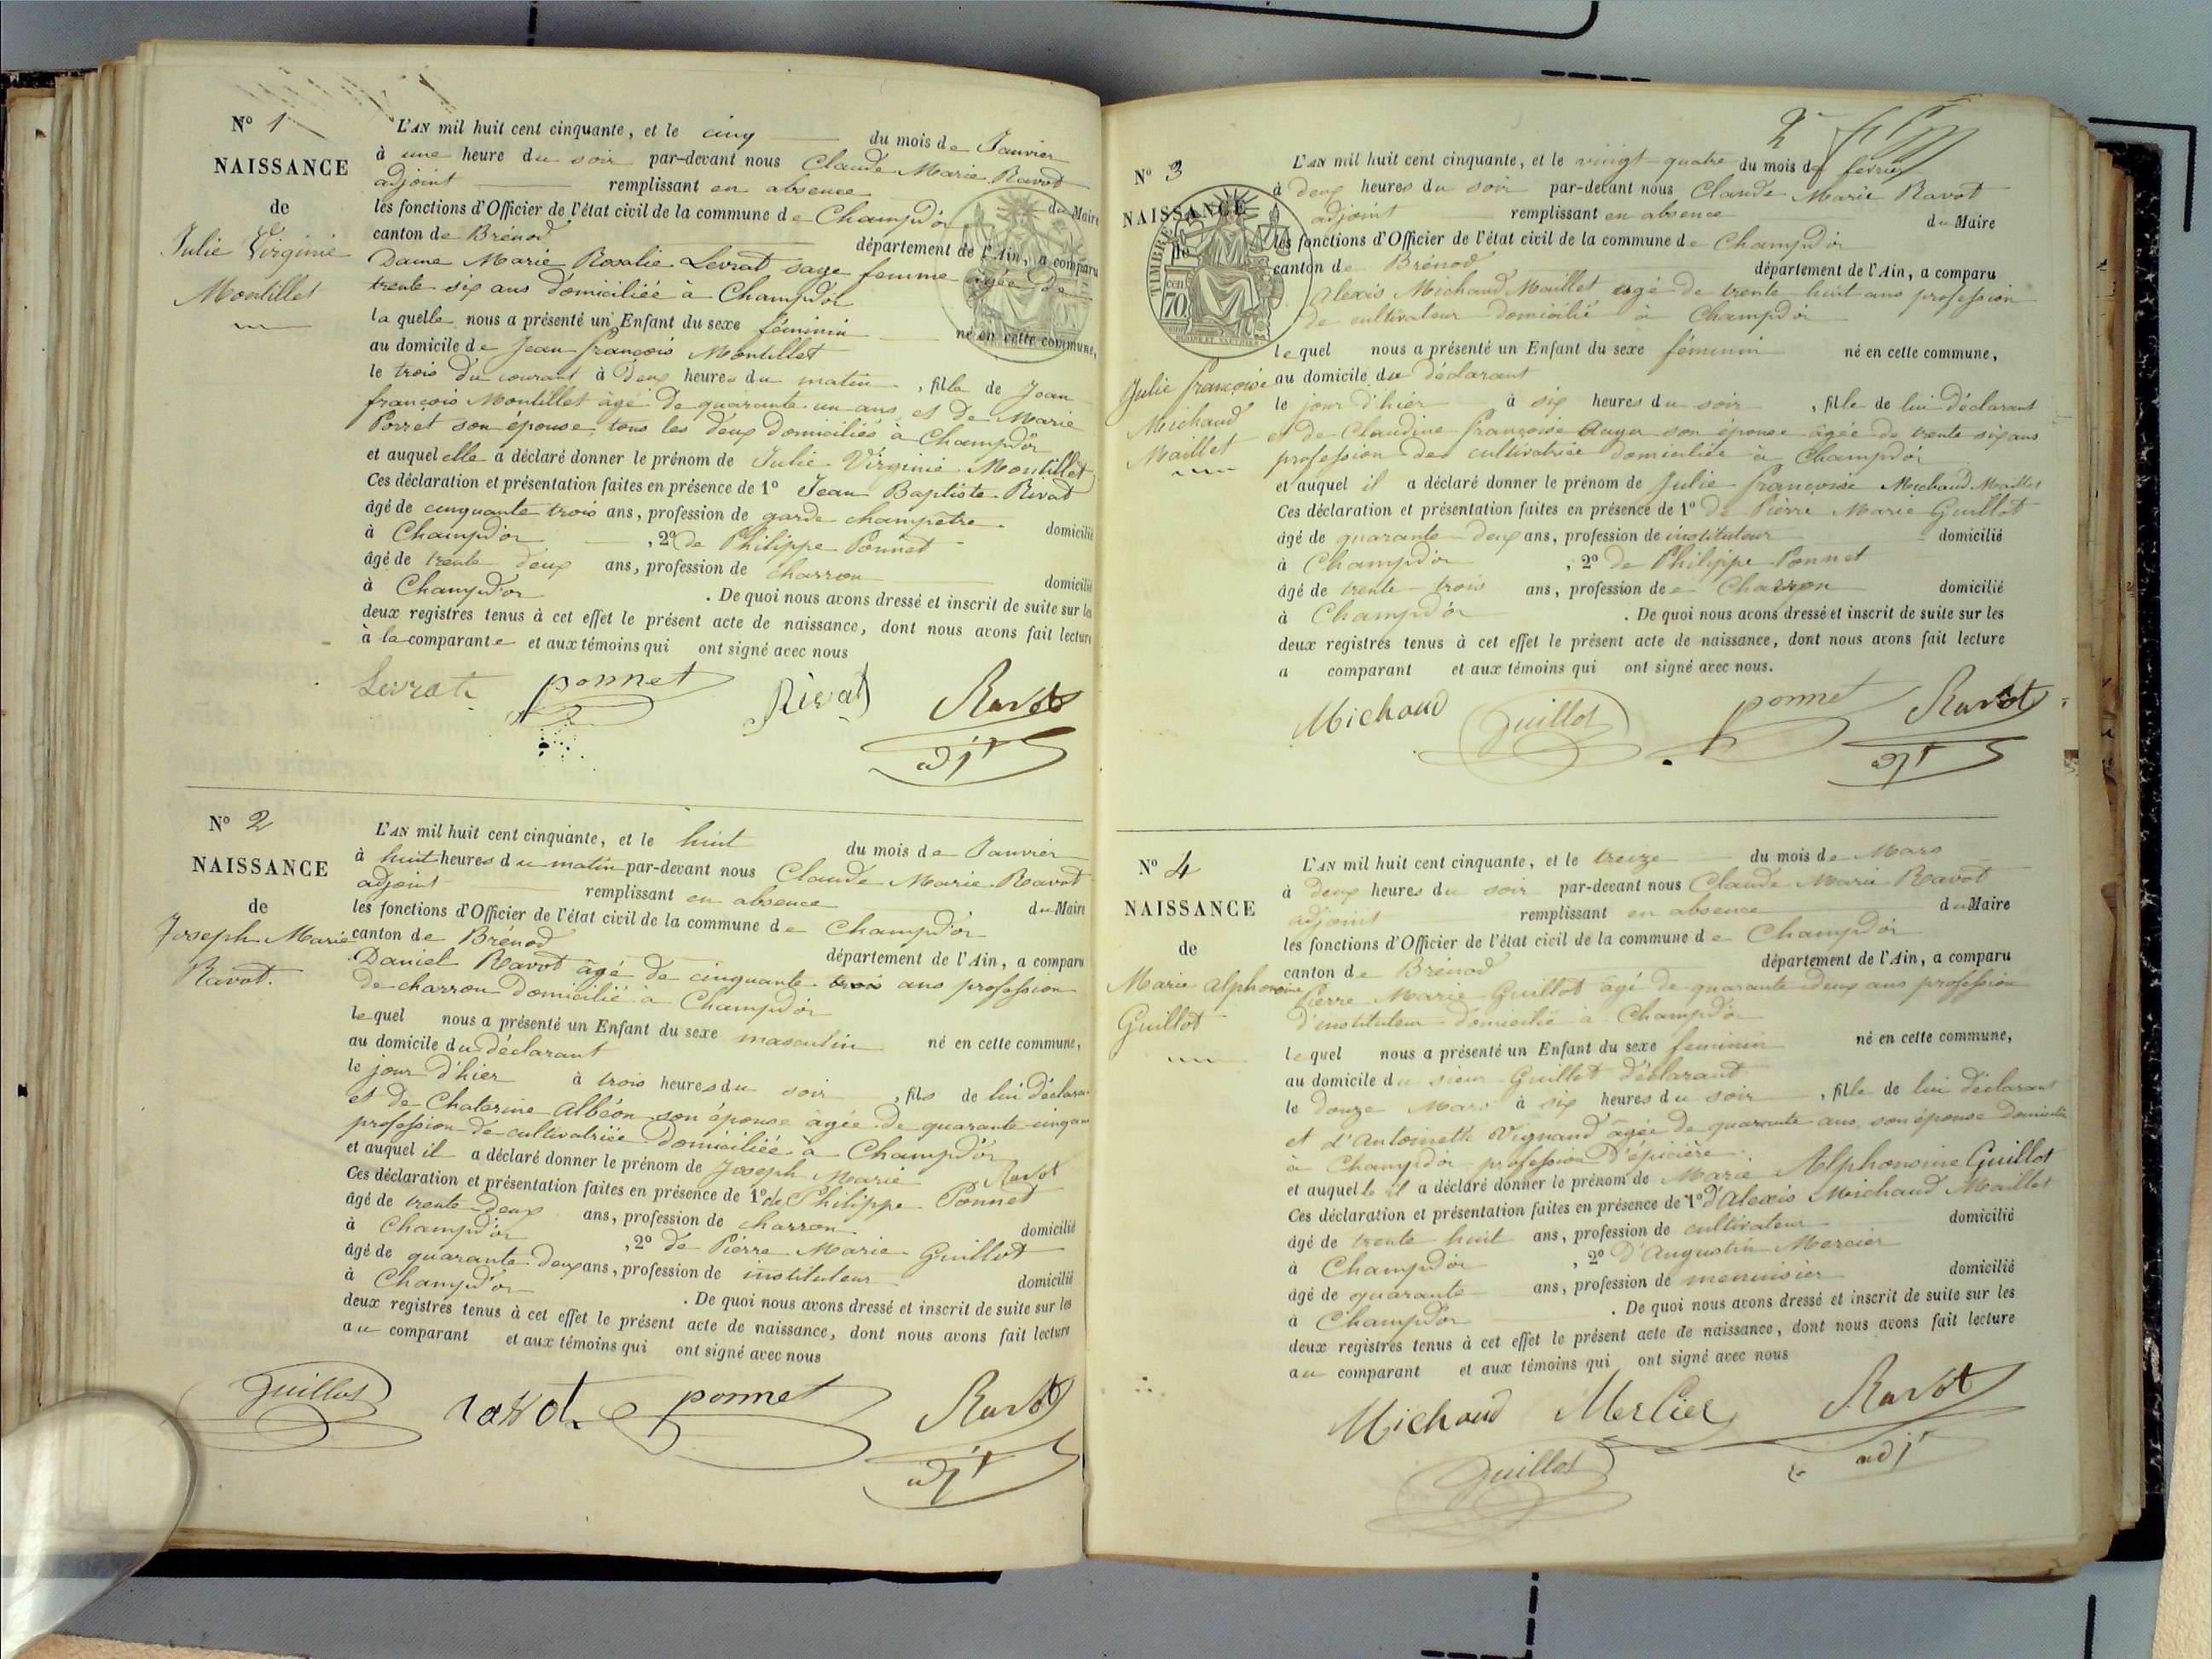 N° 1
NAISSANCE
de
Julie Virginie
Montillet
L'AN mil huit cent cinquante, et le cinq du mois de Janvier
à une heure du soir par-devant nous Claude Marie Ravot
adjoint remplissant en absence du Maire
les fonctions d'Officier de l'état civil de la commune de Champd'or
canton de Brénod département de l'Ain, a comparu
Dame Marie Rosalie Levrat sage femme âgée de
trente six ans domiciliée à Champd'or
laquelle nous a présenté un Enfant du sexe féminin né en cette commune,
au domicile de Jean françois Montillet
le trois du courant à deux heures du matin, fille de Jean
françois Montillet âgé de quarante un ans et de Marie
Porret son épouse, tous les deux domiciliés à Champd'or
et auquel elle a déclaré donner le prénom de Julie Virginie Montillet
Ces déclaration et présentation faites en présence de 1° Jean Baptiste Rivat
âgé de cinquante trois ans, profession de garde champêtre domicilié
à Champd'or, 2° de Philippe Ponnet
âgé de trente deux ans, profession de charron domicilié
à Champd'or. De quoi nous avons dressé et inscrit de suite sur les
deux registres tenus à cet effet le présent acte de naissance, dont nous avons fait lecture
à la comparante et aux témoins qui ont signé avec nous
Levrat ponnet Rivat Ravot
adjt
N° 2
NAISSANCE
de
Joseph Marie
Ravot.
L'AN mil huit cent cinquante, et le huit du mois de Janvier
à huit heures du matin par-devant nous Claude Marie Ravot
adjoint remplissant en absence du Maire
les fonctions d'Officier de l'état civil de la commune de Champd'or
canton de Brénod département de l'Ain, a comparu
Daniel Ravot âgé de cinquante trois ans profession
de charron domicilié à Champd'or
lequel nous a présenté un Enfant du sexe masculin né en cette commune,
au domicile du déclarant
le jour d'hier à trois heures du soir, fils de lui déclarant
et de Chaterine Albéon son épouse âgée de quarante cinq ans
profession de cultivatrice domiciliée à Champd'or
et auquel il a déclaré donner le prénom de Joseph Marie Ravot
Ces déclaration et présentation faites en présence de 1° de Philippe Ponnet
âgé de trente deux ans, profession de charron domicilié
à Champd'or, 2° de Pierre Marie Guillot
âgé de quarante deux ans, profession de instituteur domicilié
à Champd'or. De quoi nous avons dressé et inscrit de suite sur les
deux registres tenus à cet effet le présent acte de naissance, dont nous avons fait lecture
au comparant et aux témoins qui ont signé avec nous
Guillot ravot. ponnet Ravot
adjt
2
N° 3
NAISSANCE
de
Julie françoise
Michaud
Maillet
TIMBRE
70
L'AN mil huit cent cinquante, et le vingt-quatre du mois de fevrier
à deux heures du soir par-devant nous Claude Marie Ravot
adjoint remplissant en absence du Maire
les fonctions d'Officier de l'état civil de la commune de Champd'or
canton de Brénod département de l'Ain, a comparu
Alexis Michaud Maillet agé de trente huit ans profession
de cultivateur domicilié à Champd'or
lequel nous a présenté un Enfant du sexe féminin né en cette commune,
au domicile du déclarant
le jour d'hier à six heures du soir, fille de lui déclarant
et de Claudine françoise Auger son épouse âgée de trente six ans
profession de cultivatrice domiciliée à Champd'or
et auquel il a déclaré donner le prénom de Julie françoise Michaud Maillet
Ces déclaration et présentation faites en présence de 1° de Pierre Marie Guillot
âgé de quarante-deux ans, profession de instituteur domicilié
à Champd'or, 2° de Philippe Ponnet
âgé de trente-trois ans, profession de Charron domicilié
à Champd'or. De quoi nous avons dressé et inscrit de suite sur les
deux registres tenus à cet effet le présent acte de naissance, dont nous avons fait lecture
a comparant et aux témoins qui ont signé avec nous.
Michaud Guillot ponnet Ravot
adjt
N° 4
NAISSANCE
de
Marie alphonsine
Guillot
L'AN mil huit cent cinquante, et le treize du mois de Mars
à deux heures du soir par-devant nous Claude Marie Ravot
adjoint remplissant en absence du Maire
les fonctions d'Officier de l'état civil de la commune de Champd'or
canton de Brénod département de l'Ain, a comparu
Pierre Marie Guillot âgé de quarante deux ans profession
d'instituteur domicilié à Champd'or
lequel nous a présenté un Enfant du sexe feminin né en cette commune,
au domicile du sieur Guillot déclarant
le douze Mars à six heures du soir, fille de lui déclarant
et d'Antoinette Vignand âgée de quarante ans, son épouse domiciliée
à Champd'or profession d'épicière.
et auquelle il a déclaré donner le prénom de Marie Alphonsine Guillot
Ces déclaration et présentation faites en présence de 1° d'Alexis Michaud Maillet
âgé de trente huit ans, profession de cultivateur domicilié
à Champd'or, 2° d'Augustin Mercier
âgé de quarante ans, profession de menuisier domicilié
à Champd'or. De quoi nous avons dressé et inscrit de suite sur les
deux registres tenus à cet effet le présent acte de naissance, dont nous avons fait lecture
au comparant et aux témoins qui ont signé avec nous
Michaud Mercier Ravot
Guillot adjt